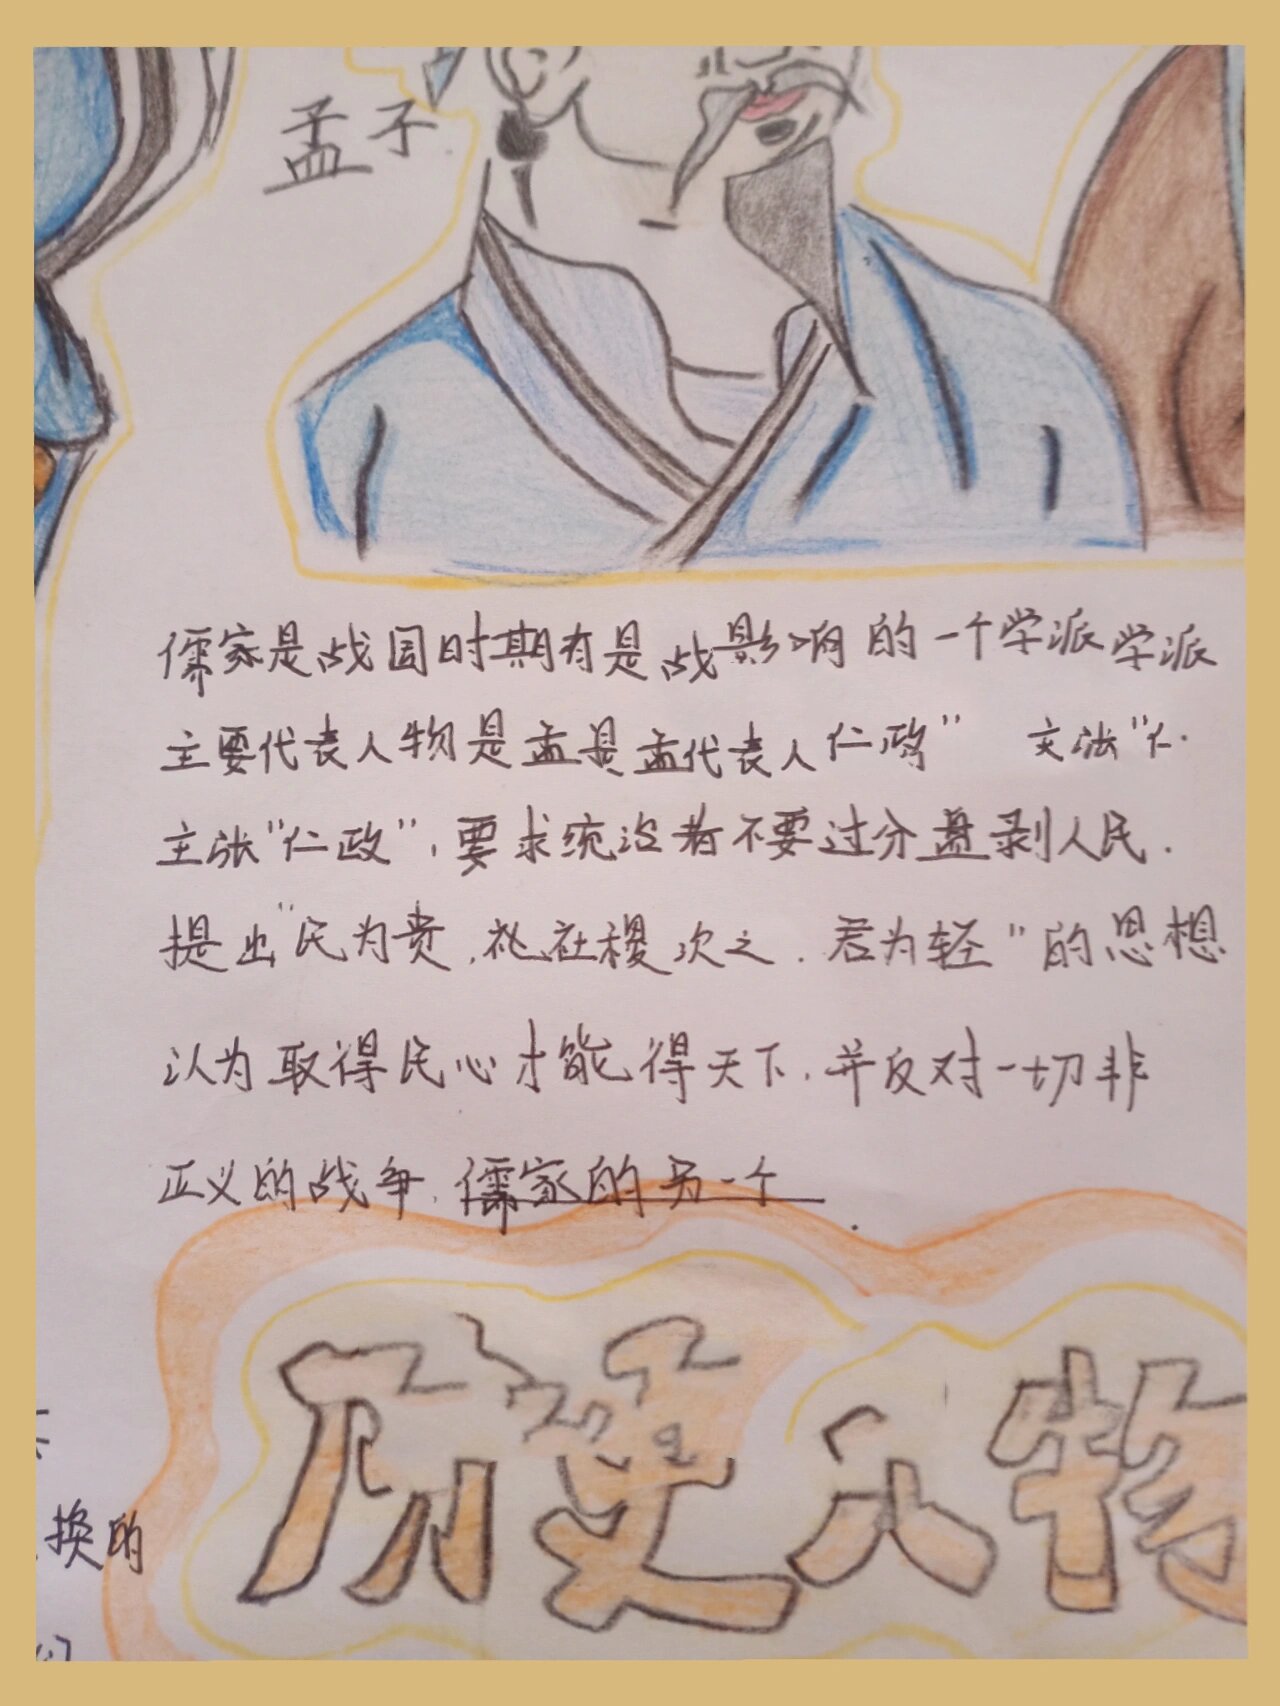 孟子
儒家是战国时期有是战影响的一个学派学派
主要代表人物是孟是孟代表人仁政” 文法“仁
主张“仁政”，要求统治者不要过分盘剥人民．
提出“民为贵，社稷次之．君为轻”的思想
认为取得民心才能得天下，并反对一切非
正义的战争．儒家的另一个
历史人物
换的